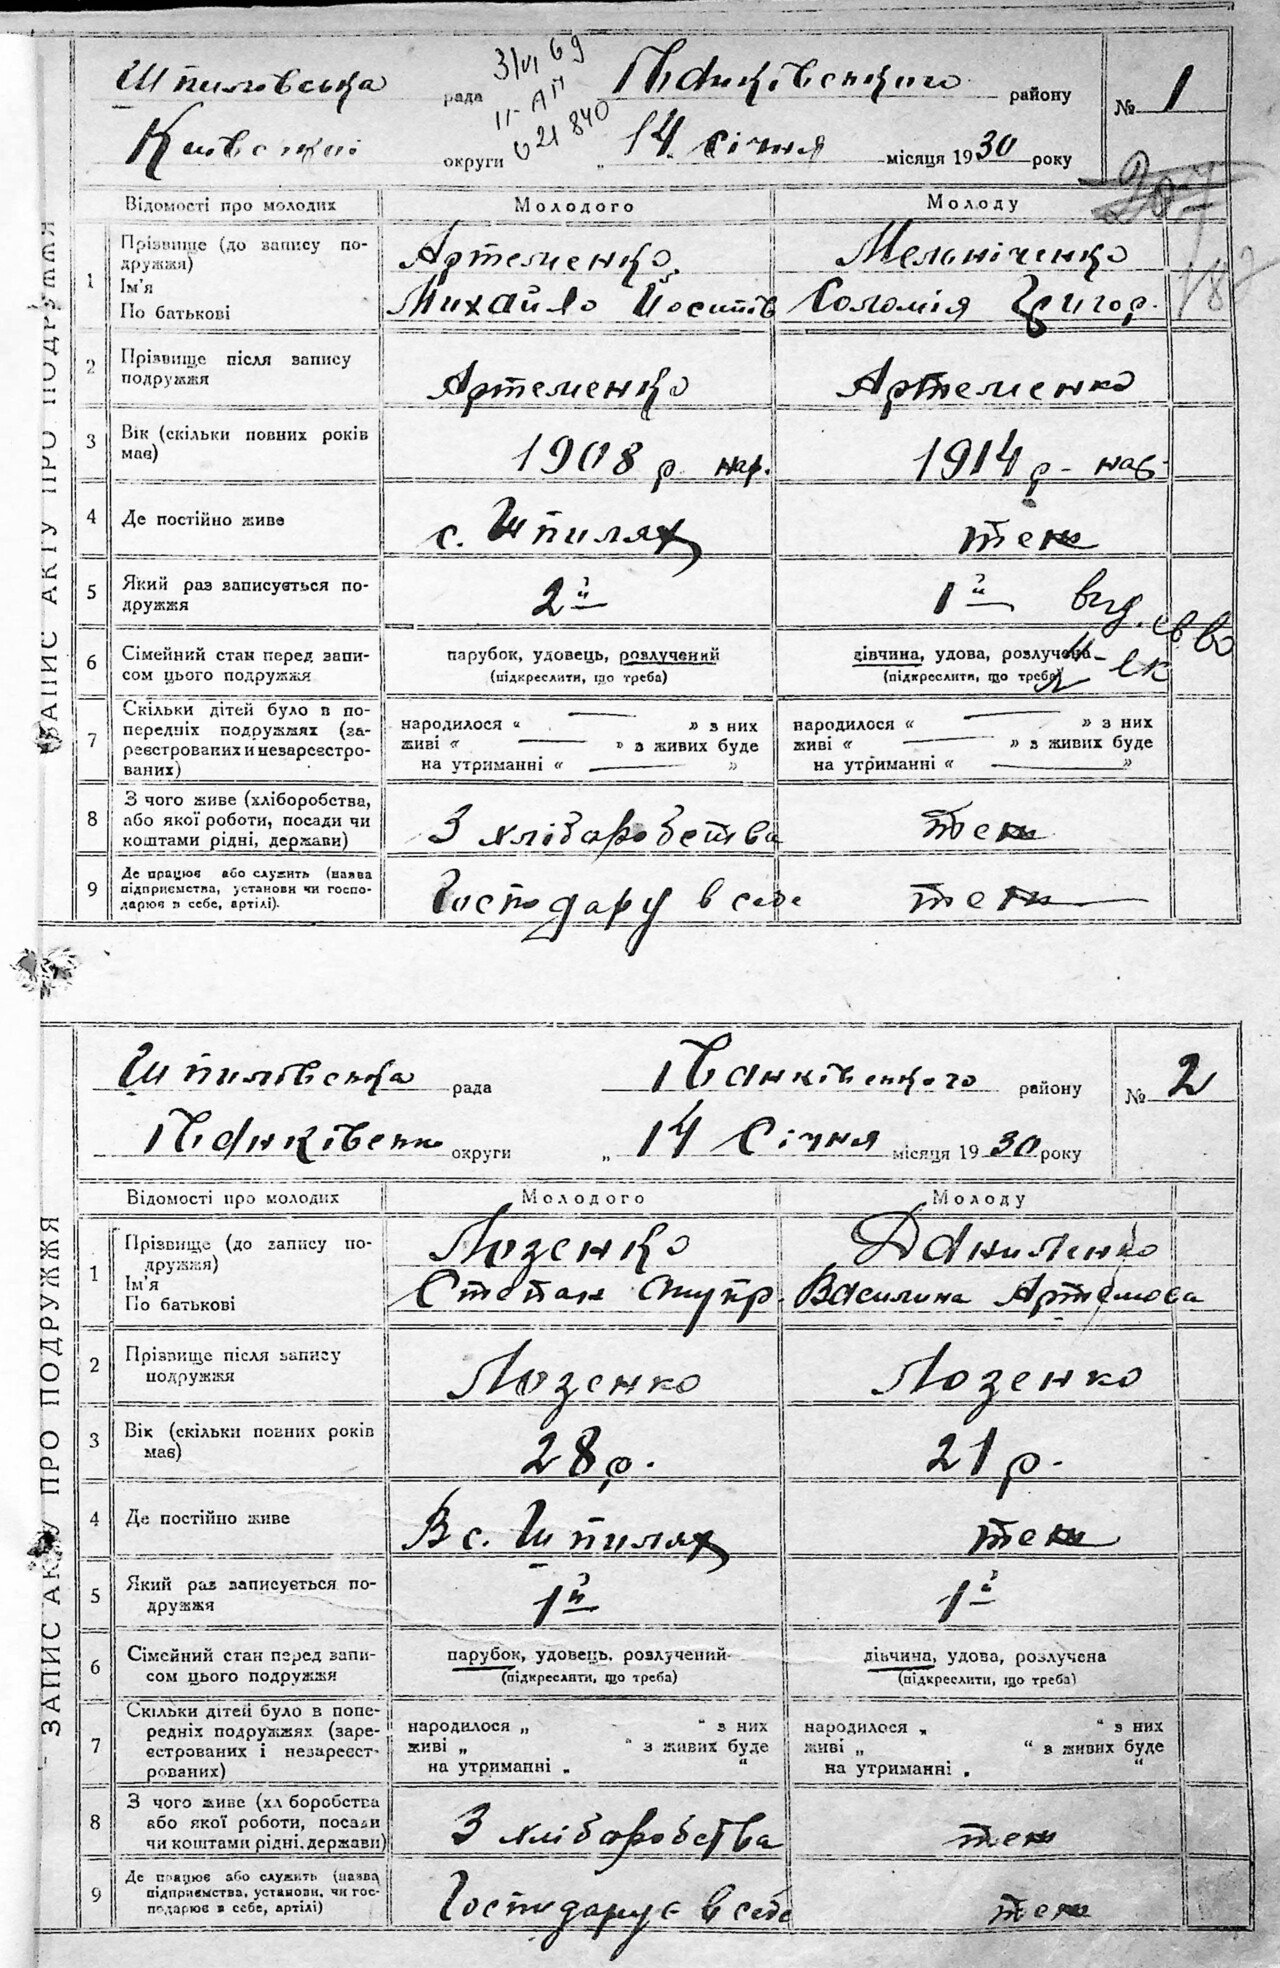 Шпилівська рада Іванківського району № 1
Київської округи „ 14 січня місяця 1930 року
3/VI 69
II-АП
021840
207
187
ЗАПИС АКТУ ПРО ПОДРУЖЖЯ
Відомості про молодих Молодого Молоду
1 Прізвище (до запису по- Артеменко Мельніченко
дружжя)
Ім'я Михайло Йосипів Соломія Григор.
По батькові
2 Прізвище після запису Артеменко Артеменко
подружжя
3 Вік (скільки повних років 1908 р нар. 1914 р- нар-
має)
4 Де постійно живе с. Шпилях теж
5 Який раз записується по- 2й 1й
дружжя
вид. св во
6 Сімейний стан перед запи- парубок, удовець, розлучений дівчина, удова, розлучена
сом цього подружжя (підкреслити, що треба) (підкреслити, що треба)
7 Скільки дітей було в по-
передніх подружжях (за- народилося „ — » з них народилося „ — » з них
реєстрованих и незареєстро- живі „ — » з живих буде живі „ — » з живих буде
ваних) на утриманні „ — » на утриманні „ — »
8 З чого живе (хліборобства, З хліборобства теж
або якої роботи, посади чи
коштами рідні, держави)
9 Де працює або служить (назва Господару в себе теж
підприємства, установи чи госпо-
дарює в себе, артілі).
Шпилівська рада Іванківського району № 2
Іванківсько округи „ 14 Січня місяця 1930 року
ЗАПИС АКТУ ПРО ПОДРУЖЖЯ
Відомості про молодих Молодого Молоду
1 Прізвище (до запису по- Лозенко Даниленко
дружжя)
Ім'я Степан Купр. Василина Артемова
По батькові
2 Прізвище після запису Лозенко Лозенко
подружжя
3 Вік (скільки повних років 28 р. 21 р.
має)
4 Де постійно живе В с. Шпилях теж
5 Який раз записується по- 1й 1й
дружжя
6 Сімейний стан перед запи- парубок, удовець, розлучений дівчина, удова, розлучена
сом цього подружжя (підкреслити, що треба) (підкреслити, що треба)
7 Скільки дітей було в попе-
редніх подружжях (заре- народилося „ “ з них народилося „ “ з них
єстрованих і незареєст- живі „ “ з живих буде живі „ “ з живих буде
рованих) на утриманні „ “ на утриманні „ “
8 З чого живе (хл боробства З хліборобства теж
або якої роботи, посади
чи коштами рідні, держави)
9 Де працює або служить (назва Господарує в себе теж
підприємства, установи, чи гос-
подарює в себе, артілі)